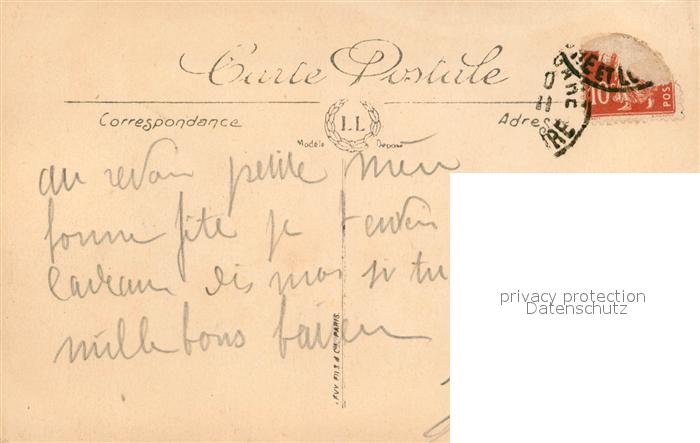 Carte Postale
Correspondance
Adres
LL
Modèle Déposé
10
POS
GARE
RE ET LO
au revoir petite
bonne fête je
cadeau dis moi si tu
mille bons baisers
LEVY FILS & Cie PARIS.
privacy protection
Datenschutz